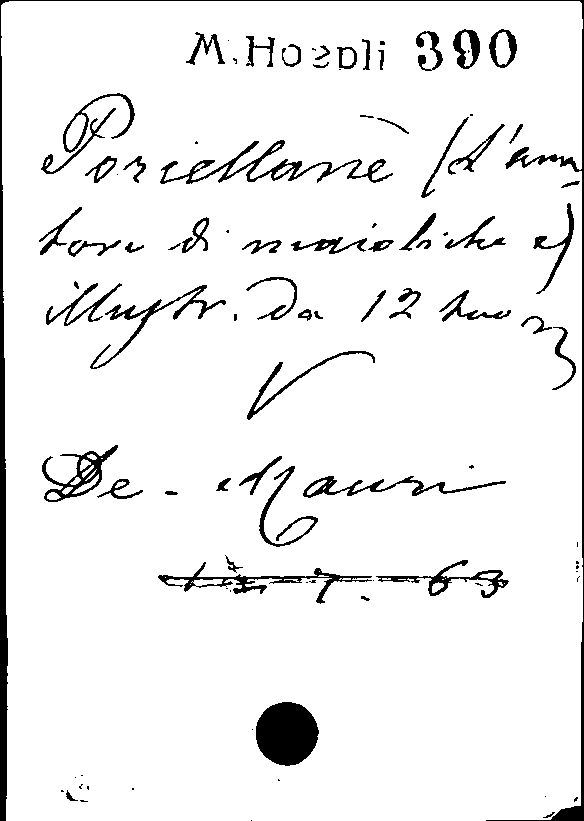 M. Hoepli 390
Porcellane (L'ama-
tore di maioliche e)
illustr. da 12 tavo
V
De-Mauri
7. 63